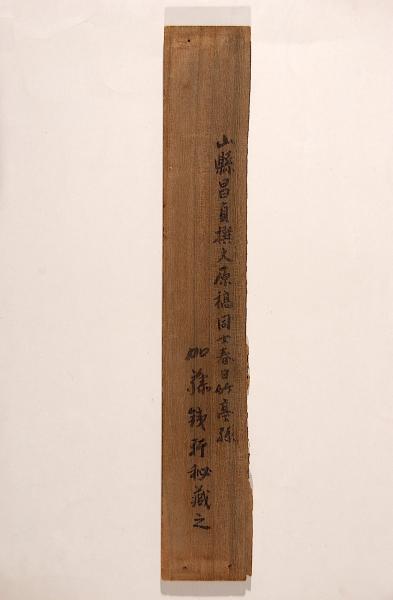 山縣昌貞撰文原稿同士春日竹亭孫
加藤銕軒秘藏之